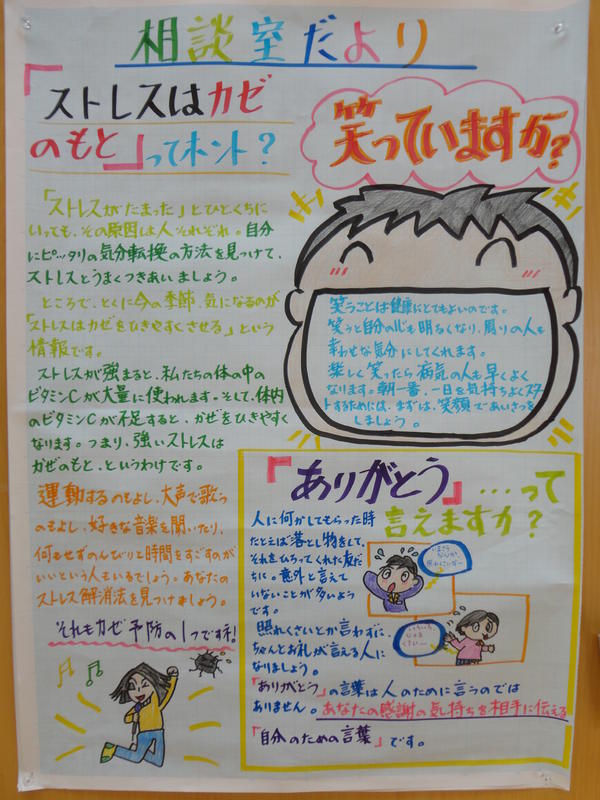 相談室だより
「ストレスはカゼ
のもと」ってホント?
「ストレスがたまった」とひとくちに
いっても、その原因は人それぞれ。自分
にピッタリの気分転換の方法を見つけて、
ストレスとうまくつきあいましょう。
ところで、とくに今の季節、気になるのが
「ストレスはカゼをひきやすくさせる」という
情報です。
ストレスが強まると、私たちの体の中の
ビタミンCが大量に使われます。そして、体内
のビタミンCが不足すると、かぜをひきやすく
なります。つまり、強いストレスは
かぜのもと、というわけです。
運動するのもよし、大声で歌う
のもよし、好きな音楽を聞いたり、
何もせずのんびりと時間をすごすのが
いいという人もいるでしょう。あなたの
ストレス解消法を見つけましょう。
それもカゼ予防の1つですネ!
笑っていますか?
笑うことは健康にとてもよいのです。
笑うと自分の心も明るくなり、周りの人も
幸わせな気分にしてくれます。
楽しく笑ったら病気の人も早くよく
なります。朝一番、一日を気持ちよくスタート
するためには、まずは、笑顔であいさつを
しましょう。
「ありがとう」…って
言えますか?
人に何かしてもらった時
たとえば落とし物をして、
それをひろってくれた友だ
ちに。意外と言えて
いないことが多いよう
です。
照れくさいとか言わずに、
ちゃんとお礼が言える人に
なりましょう。
「ありがとう」の言葉は人のために言うのでは
ありません。あなたの感謝の気持ちを相手に伝える
「自分のための言葉」です。